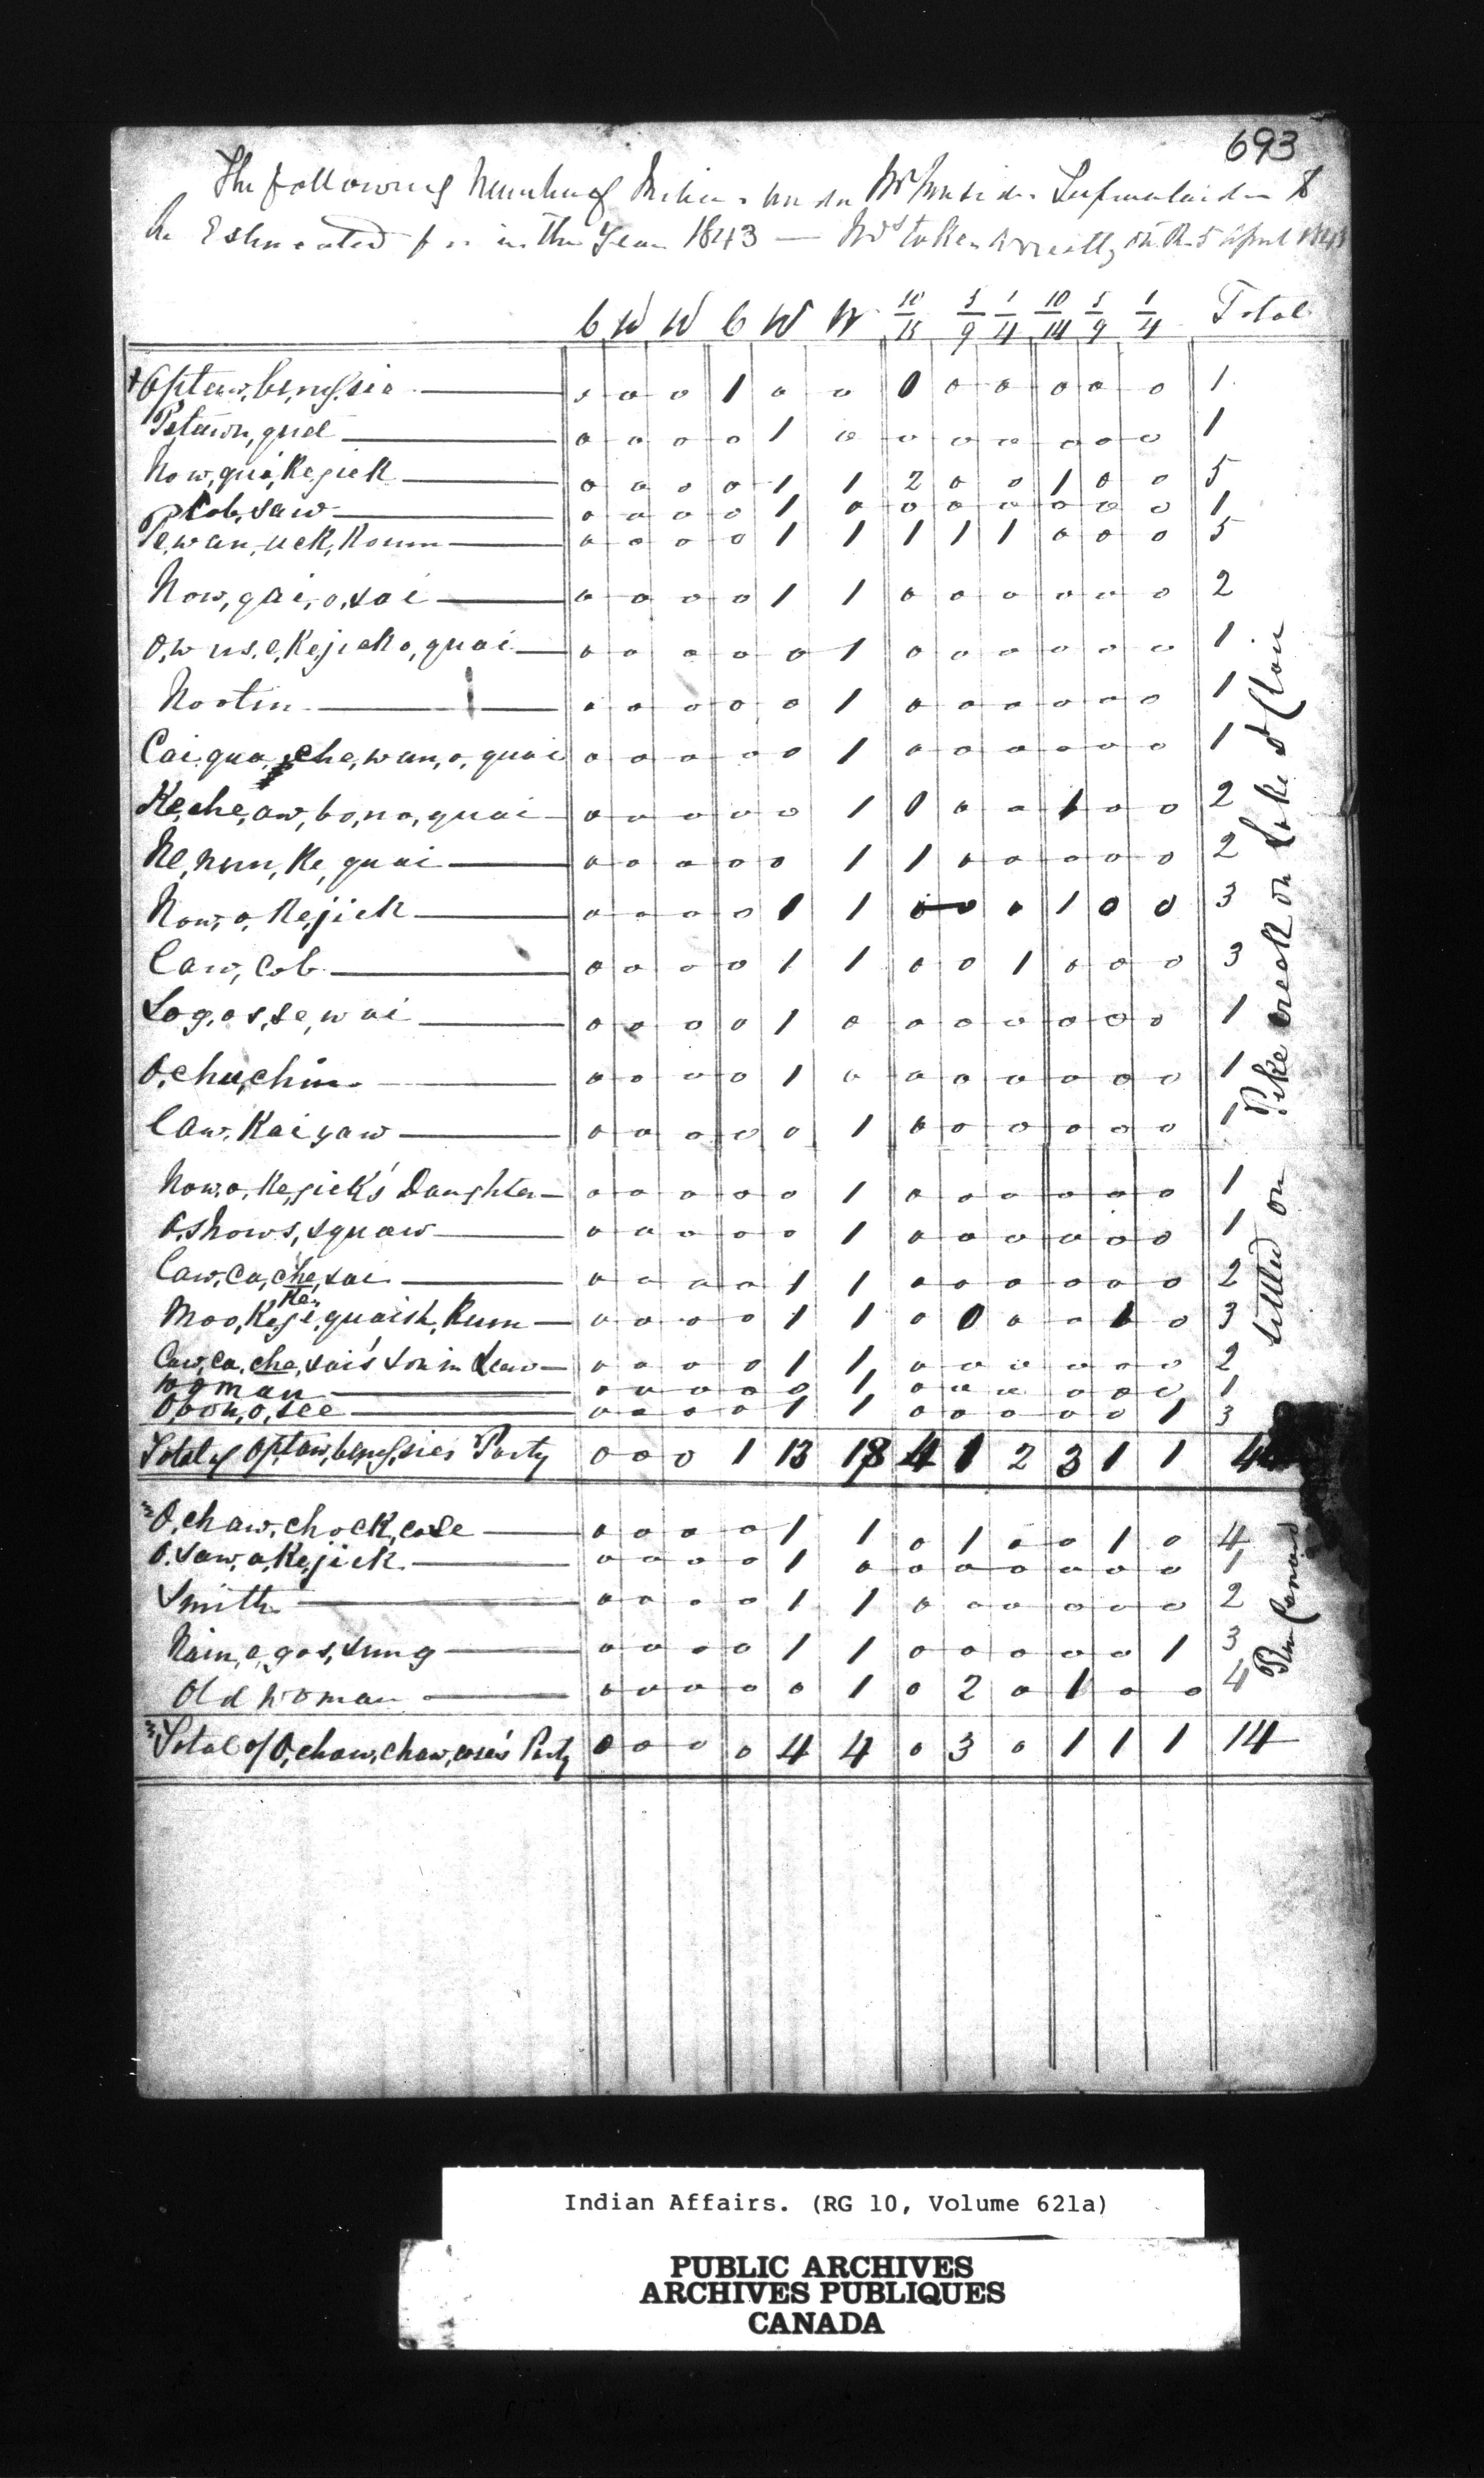 693
The following Number of Indians under Superintendence
be Estimated for in the Year 1843 — taken 5 April 1843
C W W C W W 10/15 5/9 1/4 10/14 5/9 1/4 Total
Optaw,benug,sia 0 0 0 1 0 0 0 0 0 0 0 0 1
Petawn,quel 0 0 0 0 1 0 0 0 0 0 0 0 1
Now,qui,Kejick 0 0 0 0 1 1 2 0 0 1 0 0 5
0 0 0 0 1 0 0 0 0 0 0 0 1
Pe,wan,uck,Koum 0 0 0 0 1 1 1 1 1 0 0 0 5
Now,gai,o,sai 0 0 0 0 1 1 0 0 0 0 0 0 2
O,w us,e,Kejicko,quai 0 0 0 0 0 1 0 0 0 0 0 0 1
Nootin 0 0 0 0 0 1 0 0 0 0 0 0 1
Cai,qua,che,wan,o,quai 0 0 0 0 0 1 0 0 0 0 0 0 1
Ke,che,aw,bo,no,quai 0 0 0 0 0 1 0 0 0 1 0 0 2
Ne,num,Ke,quai 0 0 0 0 0 1 1 0 0 0 0 0 2
Now,o,Kejick 0 0 0 0 1 1 0 0 0 1 0 0 3
Caw,Cob 0 0 0 0 1 1 0 0 1 0 0 0 3
Sog,as,se,wai 0 0 0 0 1 0 0 0 0 0 0 0 1
O,chu,chim 0 0 0 0 1 0 0 0 0 0 0 0 1
Caw,Kaiyaw 0 0 0 0 0 1 0 0 0 0 0 0 1
Now,o,Kejick's Daughter 0 0 0 0 0 1 0 0 0 0 0 0 1
O,shows,squaw 0 0 0 0 0 1 0 0 0 0 0 0 1
Caw,ca,che,sai 0 0 0 0 1 1 0 0 0 0 0 0 2
Ke,
Moo,Keje,quaish,Kum 0 0 0 0 1 1 0 0 0 0 1 0 3
Caw,ca,che,sai's Son in Law 0 0 0 0 1 1 0 0 0 0 0 0 2
Woman 0 0 0 0 0 1 0 0 0 0 0 0 1
O,bon,o,see 0 0 0 0 1 1 0 0 0 0 0 1 3
Total of Optaw,benug,sie's Party 0 0 0 1 13 18 4 1 2 3 1 1
O,chaw,chock,cose 0 0 0 0 1 1 0 1 0 0 1 0 4
O,saw,o,Kejick 0 0 0 0 1 0 0 0 0 0 0 0 1
Smith 0 0 0 0 1 1 0 0 0 0 0 0 2
Nain,e,gos,sung 0 0 0 0 1 1 0 0 0 0 0 1 3
Old Woman 0 0 0 0 0 1 0 2 0 1 0 0 4
Total of O,chaw,chaw,cose's Party 0 0 0 0 4 4 0 3 0 1 1 1 14
settled on Pike creek on Lake St Clair
Indian Affairs. (RG 10, Volume 621a)
PUBLIC ARCHIVES
ARCHIVES PUBLIQUES
CANADA